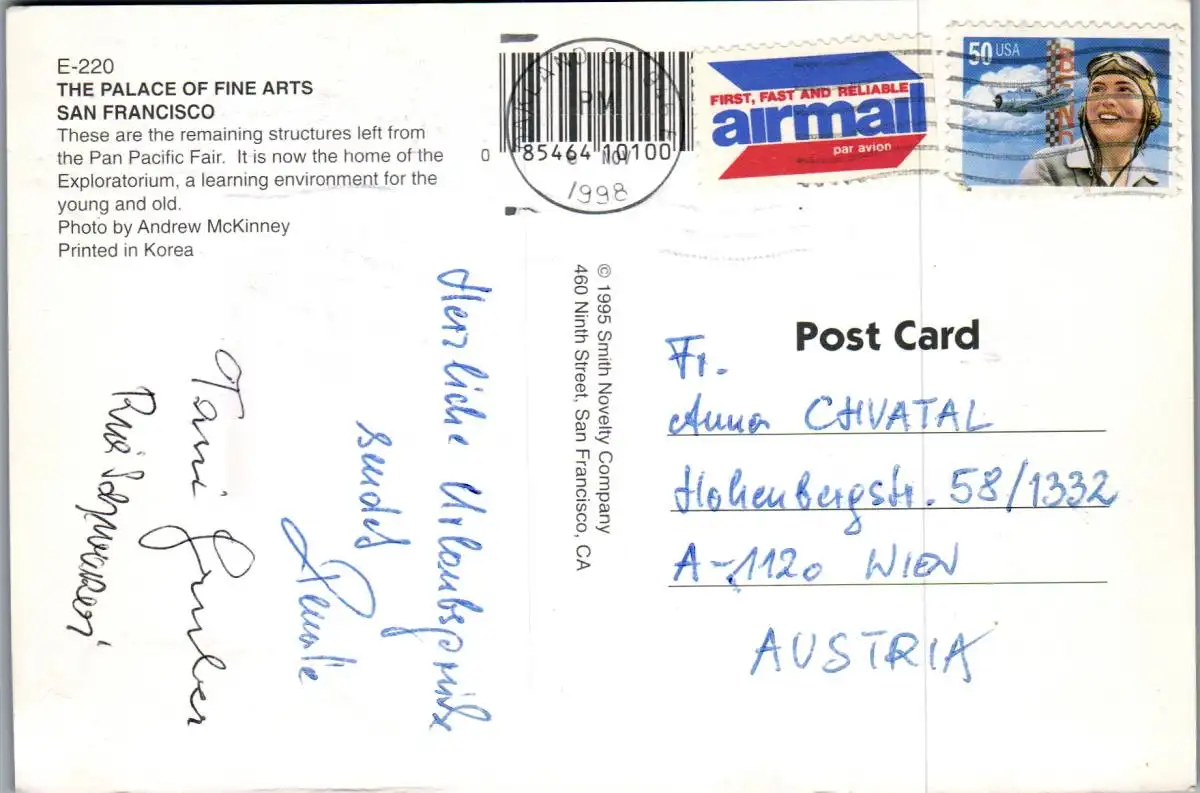 E-220
THE PALACE OF FINE ARTS
SAN FRANCISCO
These are the remaining structures left from
the Pan Pacific Fair. It is now the home of the
Exploratorium, a learning environment for the
young and old.
Photo by Andrew McKinney
Printed in Korea
0 85464 10100
OAKLAND CA
PM
NOV
1998
FIRST, FAST AND RELIABLE
airmail
par avion
50 USA
Herzliche Urlaubsgrüße
sendet
Tami Gruber
© 1995 Smith Novelty Company
460 Ninth Street, San Francisco, CA
Post Card
Fr.
Anna CHVATAL
Hohenbergstr. 58/1332
A-1120 WIEN
AUSTRIA